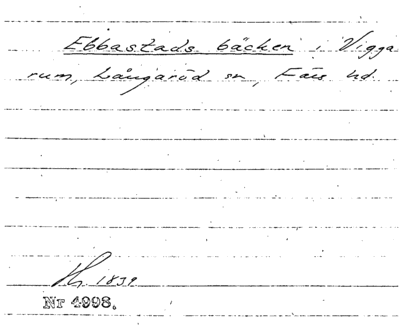 Ebbastads bäcken i Vigga
rum, Långaröd sn, Färs hd.
1839
Nr 4998.